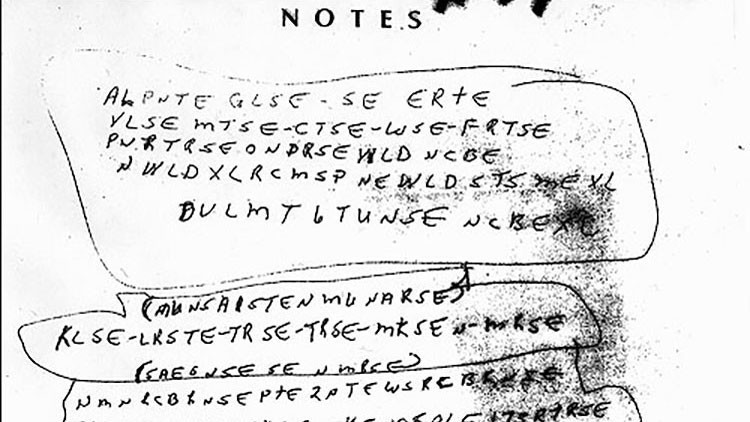 NOTES
ALPNTE GLSE - SE ERTE
VLSE MTSE-CTSE-WSE-FRTSE
PNRTRSE ONDRSE WLD NCBE
NWLDXLRCMSP NEWLDSTS ME XL
DULMT6TUNSE NCBEXC
(MUNSAISTEN MUNARSE)
KLSE-LRSTE-TRSE-TRSE-MKSEN-MRSE
(SAEGNSE SE N MRSE)
NMNRCBRNSE PTE2PTEWSRCBRNSE